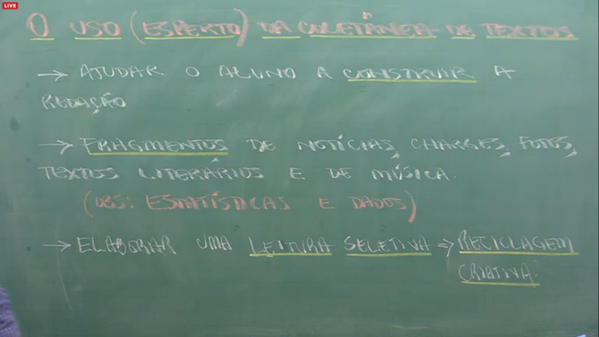 LIVE
O USO (ESPERTO) DA COLETÂNEA DE TEXTOS
→ AJUDAR O ALUNO A CONSTRUIR A
REDAÇÃO
→ FRAGMENTOS DE NOTÍCIAS, CHARGES, FOTOS,
TEXTOS LITERÁRIOS E DE MÚSICA.
(OBS: ESTATÍSTICAS E DADOS)
→ ELABORAR UMA LEITURA SELETIVA → RECICLAGEM
CRIATIVA.